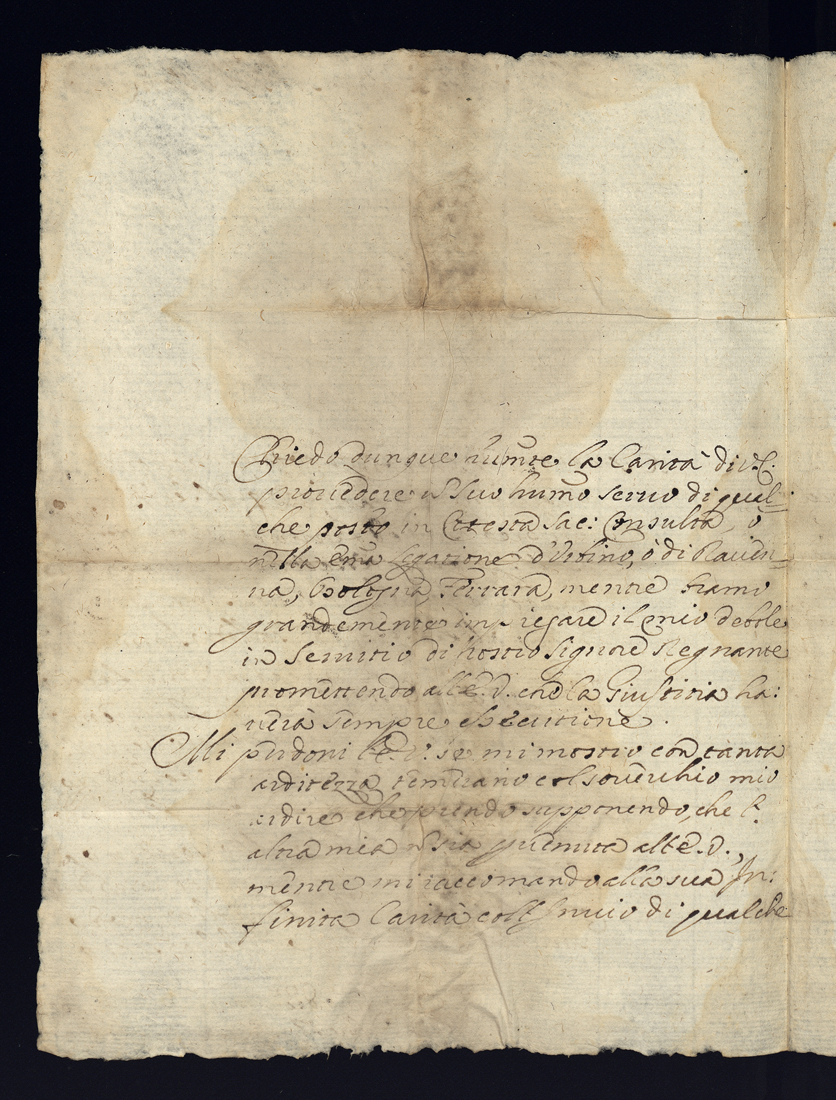 Chiedo dunque humte la Carità di V. E.
provedere il suo humo servo di qual=
che posto in Cotesta Sac: Consulta, ò
nella ema legatione d'Urbino, ò di Raven=
na, Bologna, Ferrara, mentre bramo
grandemente impiegare il mio debole
in Servitio di Nostro Signore Regnante
promettendo all'E. V. che la Giustitia ha:
verà sempre essecutione.
Mi perdoni l'E. V. se mi mostro con tanta
arditezza temerario col soverchio mio
ardire che prendo supponendo, che l'
altra mia sia pervenuta all'E. V.,
mentre mi raccomando alla sua In:
finita Carità coll'Invio di qualche